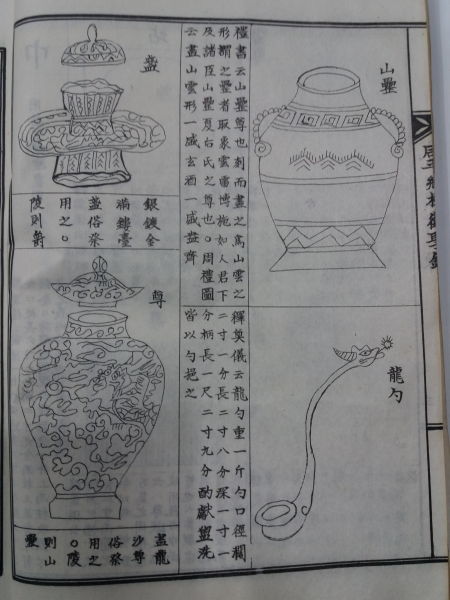 山罍
禮書云山罍尊也刻而畫之爲山雲之
形謂之罍者取象雲雷博施如人君下
及諸臣山罍夏后氏之尊也○周禮圖
云畫山雲形一盛玄酒一盛盎齊
龍勺
釋奠儀云龍勺重一斤勺口徑闊
二寸一分長二寸八分深一寸一
分柄長一尺二寸九分酌獻盥洗
皆以勺挹之
盞
銀鍍金
滿鏤臺
盞俗祭
用之○
陵則爵
尊
畫龍
沙尊
俗祭
用之
○陵
則山
罍